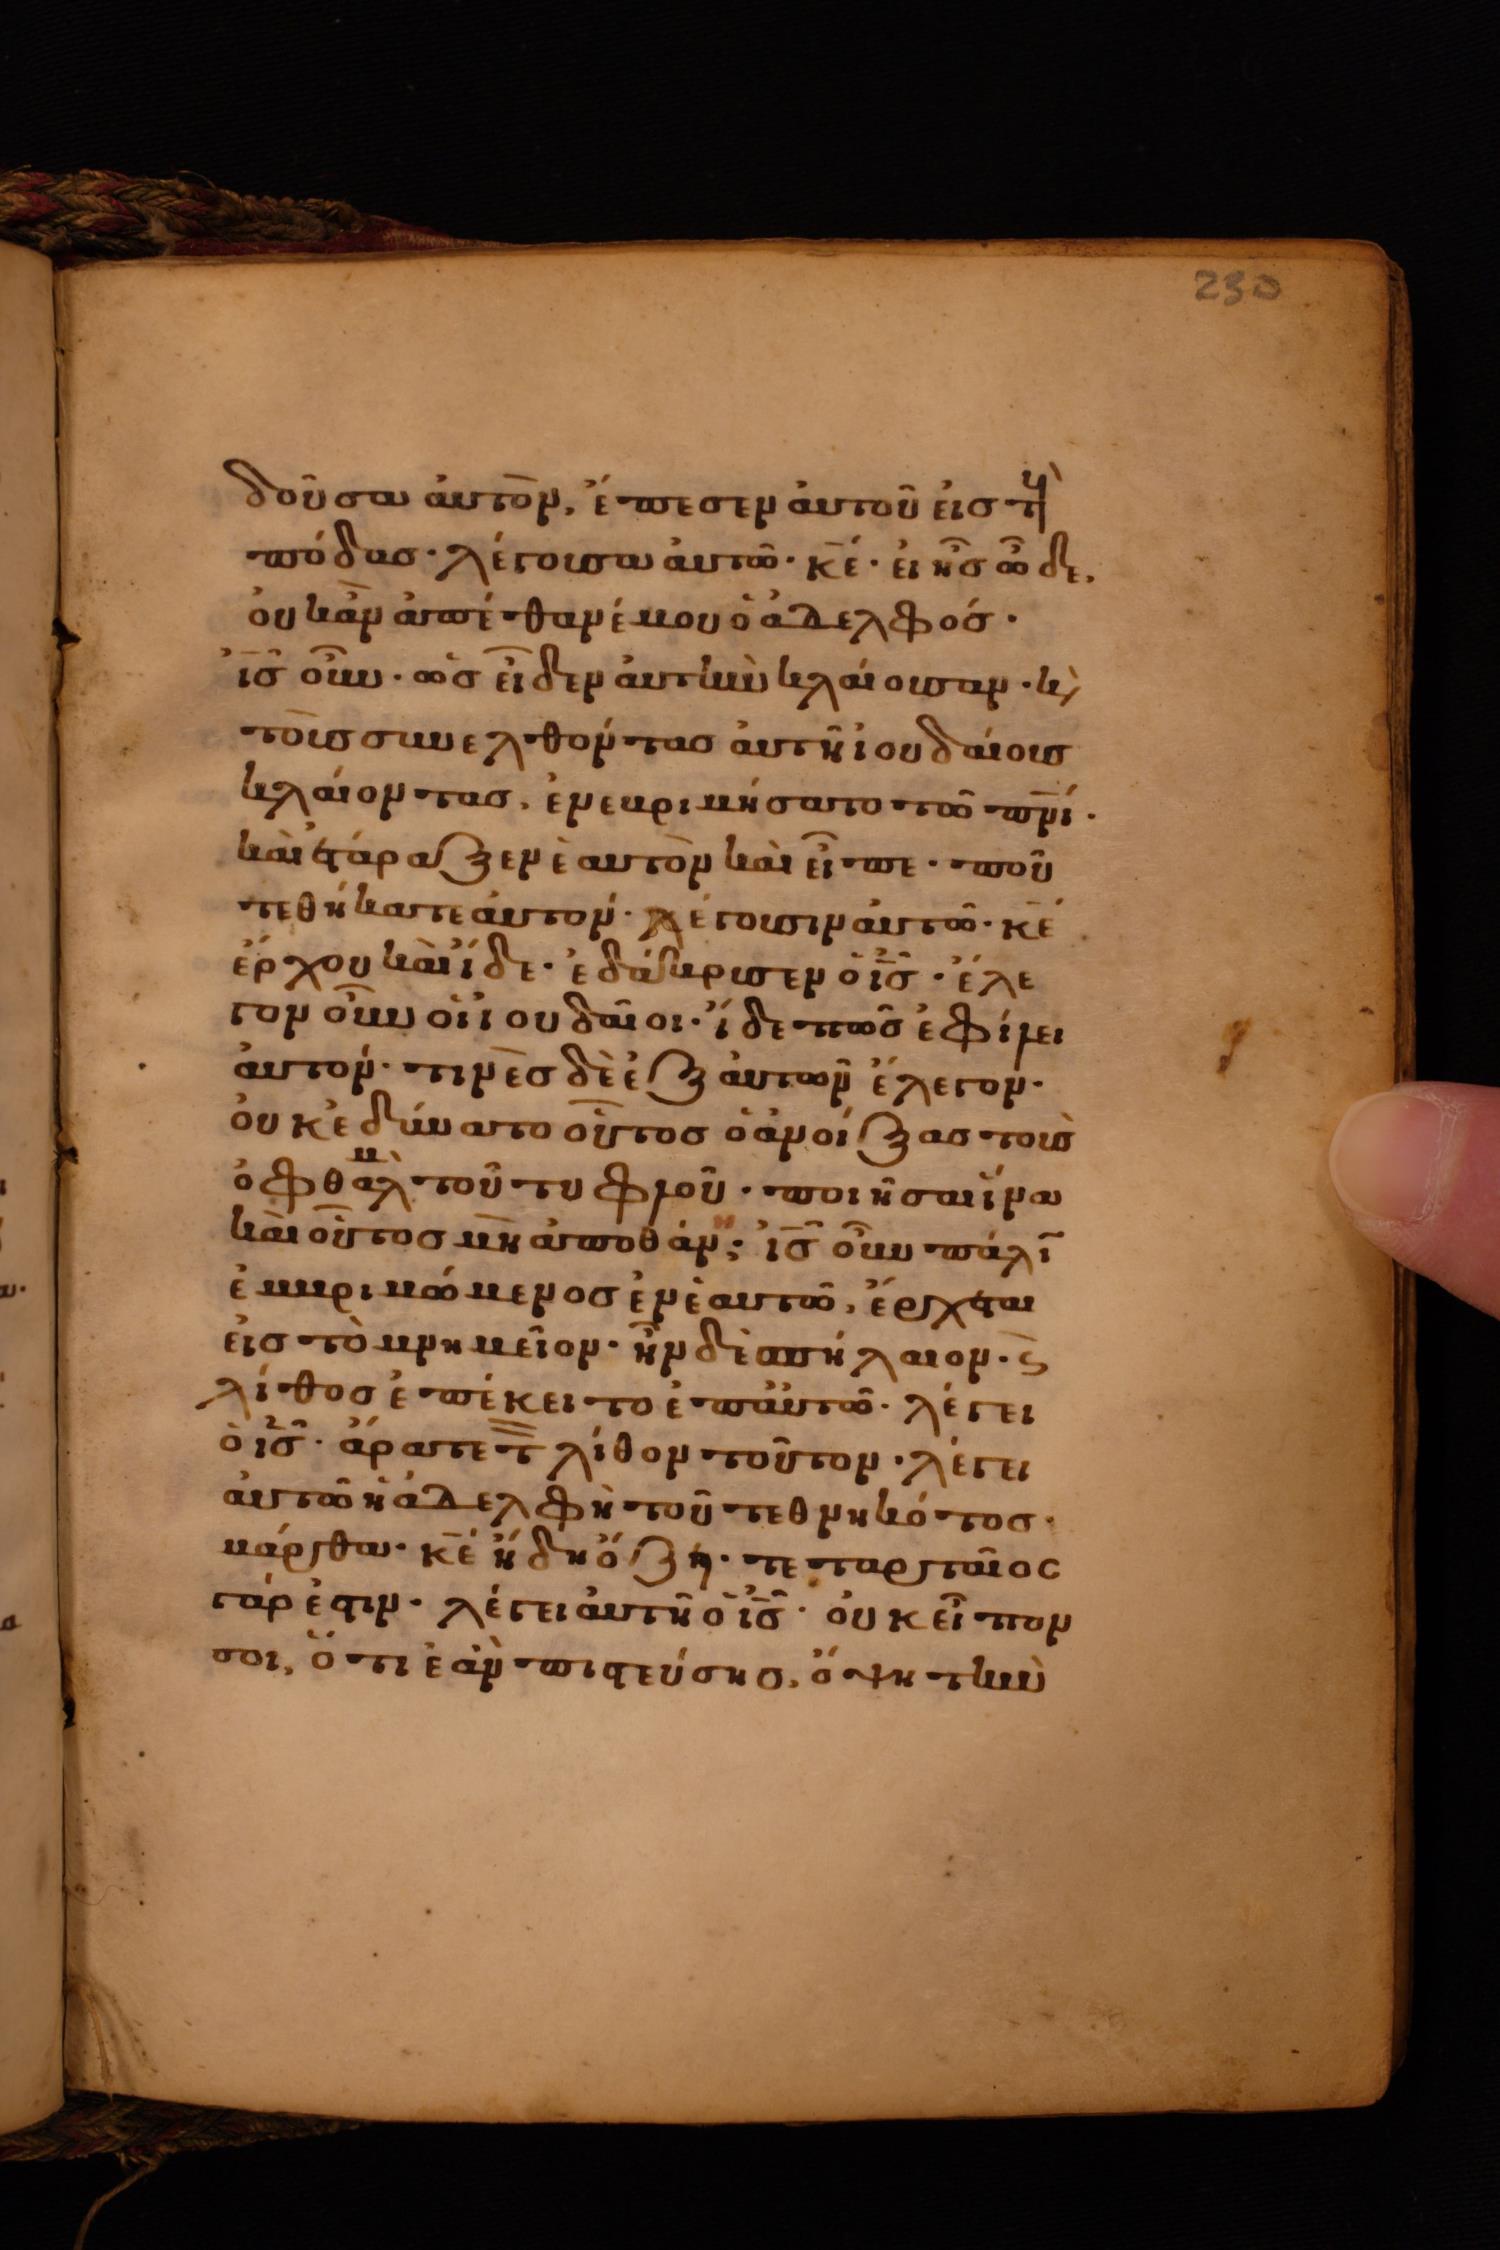 230
δοῦσα ἀυτὸν, ἔπεσεν ἀυτοῦ ἐισ τ
πόδασ· λέγουσα ἀυτῶ· κε̄· ἐι ἦσ ὧδε,
ὀυκ ἂν ἀπέθανέ μου ὁ ἀδελφόσ·
ἰσ̄ οὖν· ὡσ εἶδεν ἀυτὴν κλάιουσαν· κ̀
τοὺσ συνελθόντασ ἀυτῆ ἰουδάιουσ
κλάιοντασ, ἐνεβριμήσατο τῶ πν̄ι·
καὶ ἐτάραξεν ἑαυτὸν καὶ εἶπε· ποῦ
τεθήκατε ἀυτόν· λέγουσιν ἀυτῶ· κε̄
ἔρχου καὶ ἴδε· ἐδάκρυσεν ὁ ἰσ̄· ἔλε
γον οὖν ὁι ἰουδαῖοι· ἴδε πῶσ ἐφίλει
ἀυτόν· τινὲσ δὲ ἐξ ἀυτῶν ἔλεγον·
ὀυκ ἐδύνατο οὗτοσ ὁ ἀνοίξασ τοὺσ
ὀφθαλμ τοῦ τυφλοῦ· ποιῆσαι ἵνα
καὶ οὗτοσ μὴ ἀποθάνη; ἰσ̄ οὖν πάλῑ
ἐμβριμώμενοσ ἐν ἑαυτῶ, ἔρχεται
ἐισ τὸ μνημεῖον· ἦν δὲ σπήλαιον· ϛ̀
λίθοσ ἐπέκειτο ἐπ ἀυτῶ· λέγει
ὁ ἰσ̄· ἄρατε τ̀ λίθον τοῦτον· λέγει
ἀυτῶ ἡ ἀδελφὴ τοῦ τεθνηκότοσ·
μάρθα· κε̄ ἤδη ὄζει· τεταρταῖος
γάρ ἐστιν· λέγει ἀυτῆ ὁ ἰσ̄· ὀυκ εἶπον
σοι, ὅτι ἐὰν πιστεύσησ, ὄψη τὴν